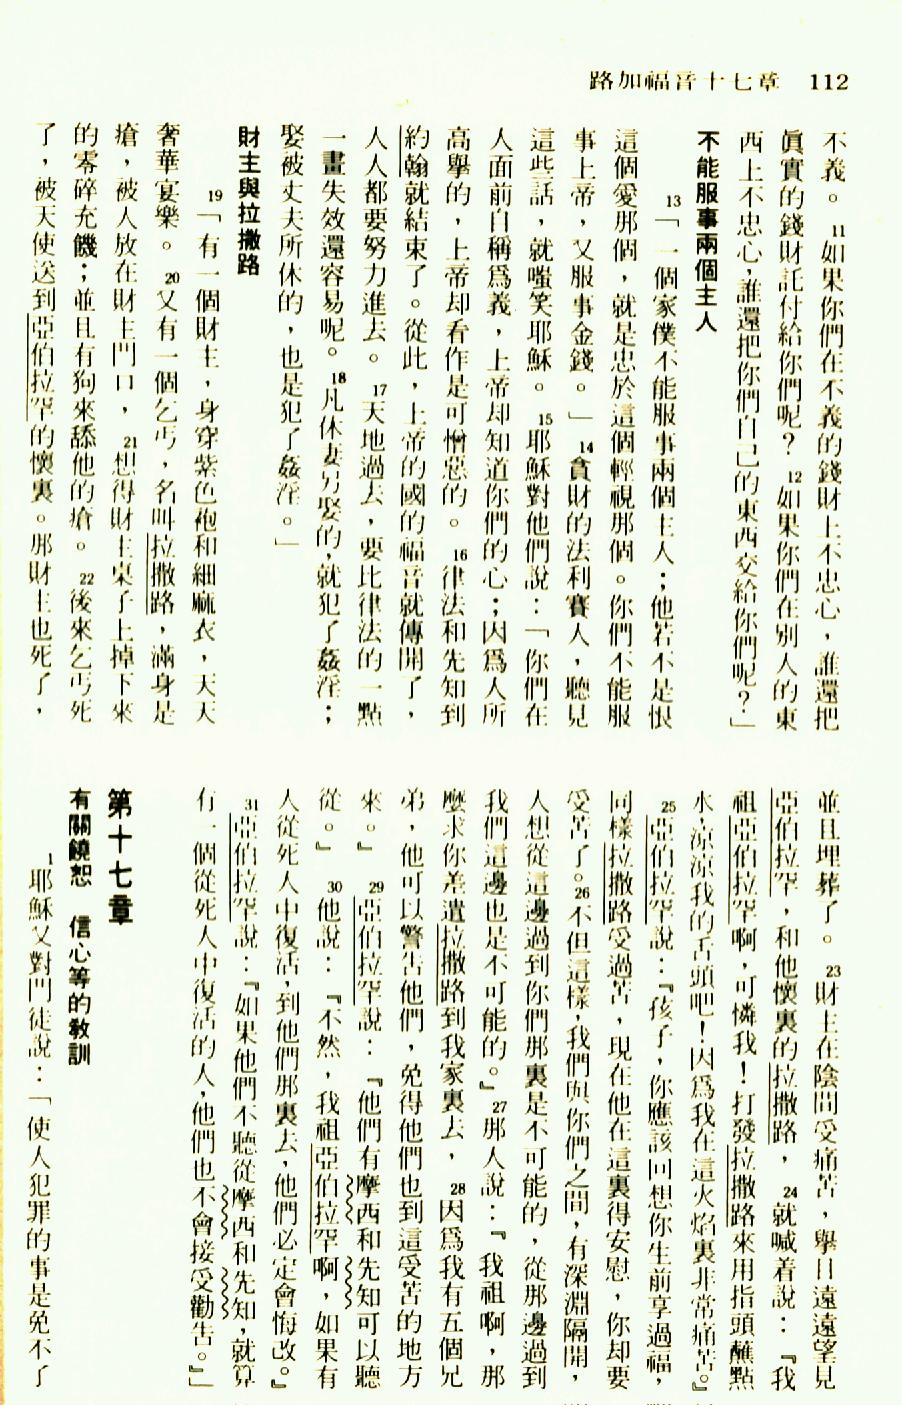 路加福音十七章　112
不義。11如果你們在不義的錢財上不忠心，誰還把
眞實的錢財託付給你們呢？12如果你們在別人的東
西上不忠心，誰還把你們自己的東西交給你們呢？」
不能服事兩個主人
13「一個家僕不能服事兩個主人；他若不是恨
這個愛那個，就是忠於這個輕視那個。你們不能服
事上帝，又服事金錢。」14貪財的法利賽人，聽見
這些話，就嗤笑耶穌。15耶穌對他們說：「你們在
人面前自稱爲義，上帝却知道你們的心；因爲人所
高舉的，上帝却看作是可憎惡的。16律法和先知到
約翰就結束了。從此，上帝的國的福音就傳開了，
人人都要努力進去。17天地過去，要比律法的一點
一畫失效還容易呢。18凡休妻另娶的，就犯了姦淫；
娶被丈夫所休的，也是犯了姦淫。」
財主與拉撒路
19「有一個財主，身穿紫色袍和細麻衣，天天
奢華宴樂。20又有一個乞丐，名叫拉撒路，滿身是
瘡，被人放在財主門口，21想得財主桌子上掉下來
的零碎充饑；並且有狗來舔他的瘡。22後來乞丐死
了，被天使送到亞伯拉罕的懷裏。那財主也死了，
並且埋葬了。23財主在陰間受痛苦，舉目遠遠望見
亞伯拉罕，和他懷裏的拉撒路，24就喊着說：『我
祖亞伯拉罕啊，可憐我！打發拉撒路來用指頭蘸點
水，涼涼我的舌頭吧！因爲我在這火焰裏非常痛苦。』
25亞伯拉罕說：『孩子，你應該回想你生前享過福，
同樣拉撒路受過苦，現在他在這裏得安慰，你却要
受苦了。26不但這樣，我們與你們之間，有深淵隔開，
人想從這邊過到你們那裏是不可能的，從那邊過到
我們這邊也是不可能的。』27那人說：『我祖啊，那
麼求你差遣拉撒路到我家裏去，28因爲我有五個兄
弟，他可以警告他們，免得他們也到這受苦的地方
來。』29亞伯拉罕說：『他們有摩西和先知可以聽
從。』30他說：『不然，我祖亞伯拉罕啊，如果有
人從死人中復活，到他們那裏去，他們必定會悔改。』
31亞伯拉罕說：『如果他們不聽從摩西和先知，就算
有一個從死人中復活的人，他們也不會接受勸告。』」
第十七章
有關饒恕　信心等的敎訓
1耶穌又對門徒說：「使人犯罪的事是免不了